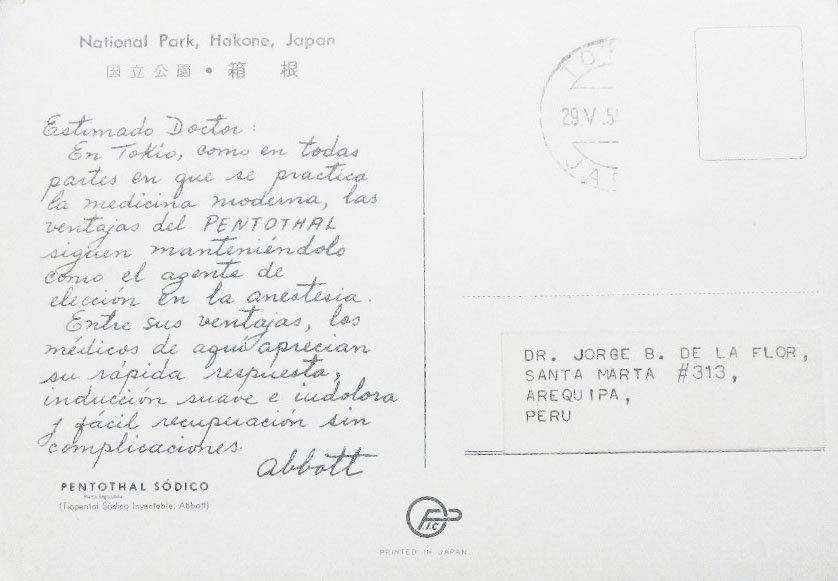 National Park, Hakone, Japan
国立公園 • 箱 根
Estimado Doctor:
En Tokio, como en todas
partes en que se practica
la medicina moderna, las
ventajas del PENTOTHAL
siguen manteniéndolo
como el agente de
elección en la anestesia.
Entre sus ventajas, los
médicos de aquí aprecian
su rápida respuesta,
inducción suave e indolora
y fácil recuperación sin
complicaciones.
Abbott
PENTOTHAL SÓDICO
Marca Registrada
(Tiopental Sódico Inyectable, Abbott)
29.V.5
JA
DR. JORGE B. DE LA FLOR,
SANTA MARTA #313,
AREQUIPA,
PERU
PRINTED IN JAPAN